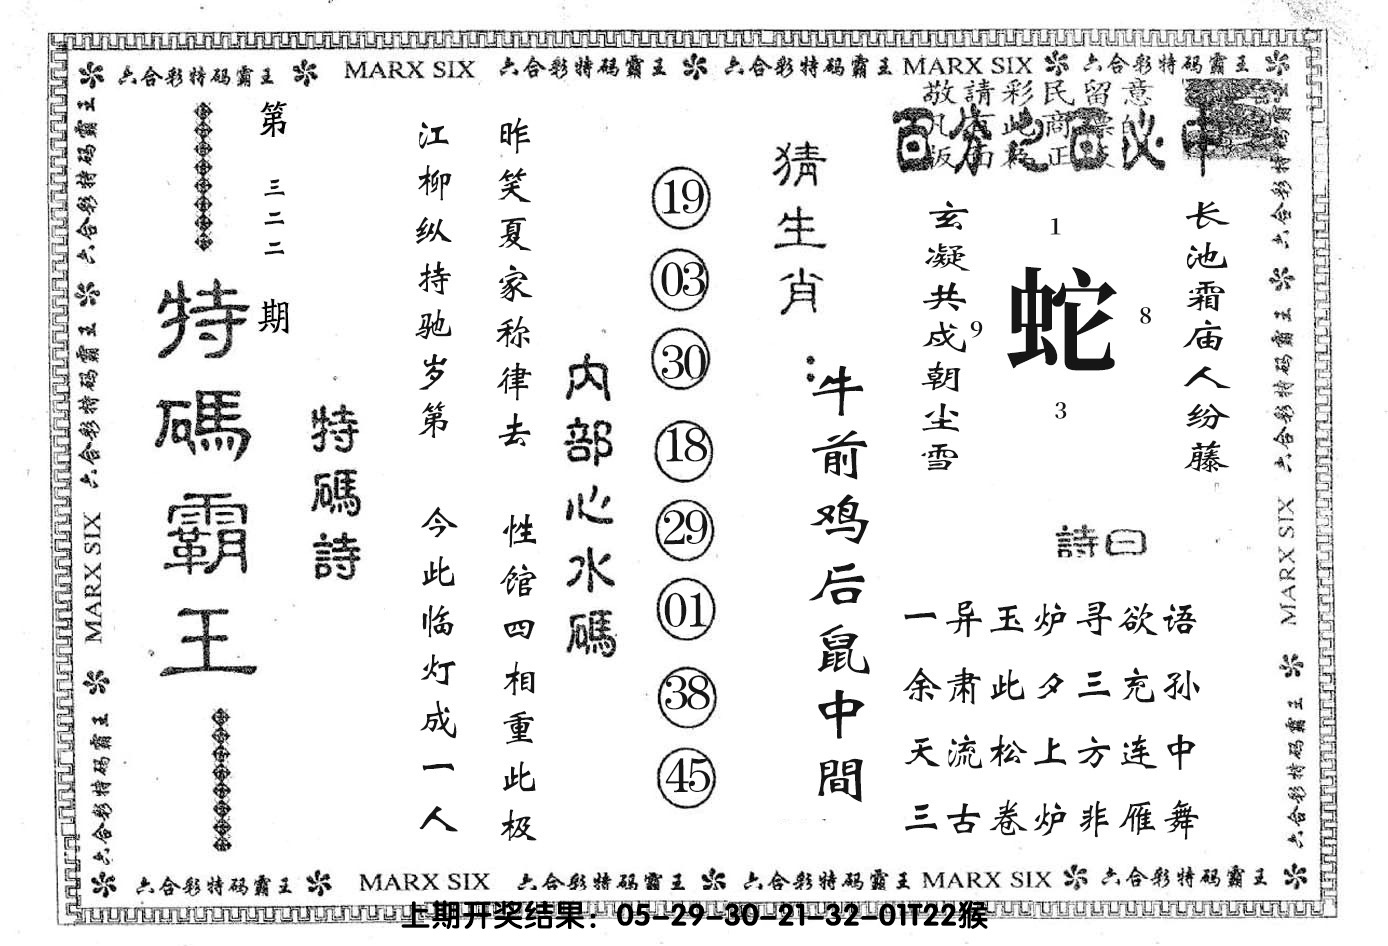 六合彩特码霸王 MARX SIX 六合彩特码霸王 六合彩特码霸王 MARX SIX 六合彩特码霸王
敬請彩民留意
百分之百必中
长池霜庙人纷藤
1
蛇
8
9
3
玄凝共成朝尘雪
詩曰
一异玉炉寻欲语
余肃此夕三充孙
天流松上方连中
三古卷炉非雁舞
猜生肖：
牛前鸡后鼠中間
19
03
30
18
29
01
38
45
内部心水碼
昨笑夏家称律去 性馆四相重此极
江柳纵持驰岁第 今此临灯成一人
特碼詩
第三二二期
特碼霸王
六合彩特码霸王 六合彩特码霸王 MARX SIX 六合彩特码霸王
六合彩特码霸王 六合彩特码霸王 MARX SIX 六合彩特码霸王
六合彩特码霸王 MARX SIX 六合彩特码霸王 六合彩特码霸王 MARX SIX 六合彩特码霸王
上期开奖结果：05-29-30-21-32-01T22猴